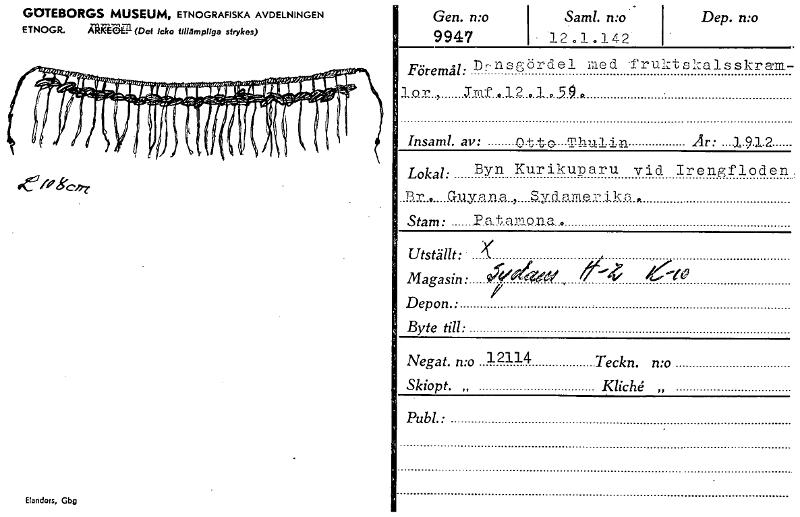 GÖTEBORGS MUSEUM, ETNOGRAFISKA AVDELNINGEN
ETNOGR. ARKEOL. (Det icke tillämpliga strykes)
L 108 cm
Elanders, Gbg
Gen. n:o Saml. n:o Dep. n:o
9947 12.1.142
Föremål: Dansgördel med fruktskalsskram-
lor, Jmf.12.1.59.
Insaml. av: Otto Thulin År: 1912
Lokal: Byn Kurikuparu vid Irengfloden
Br. Guyana, Sydamerika.
Stam: Patamona.
Utställt: X
Magasin: Sydam H-2 K-10
Depon.:
Byte till:
Negat. n:o 12114 Teckn. n:o
Skiopt. „ Kliché „
Publ.: